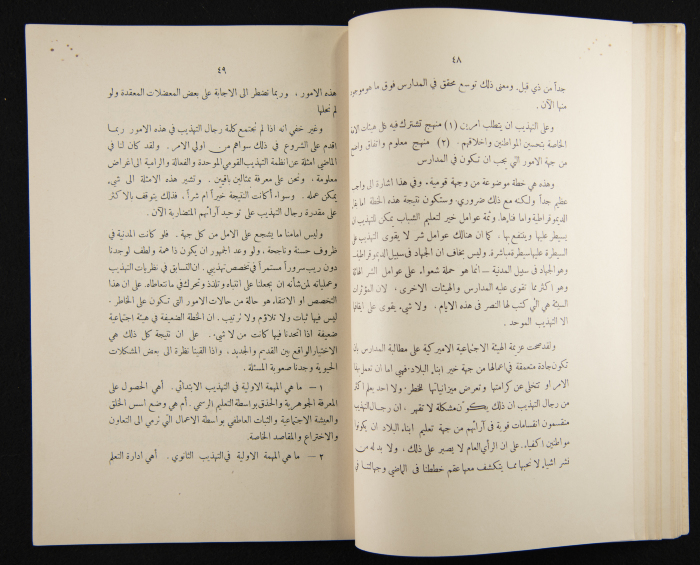 ٤٨
جداً من ذي قبل. ومعنى ذلك توسع محقق في المدارس فوق ما هو موجود
منها الآن.
وعلى التهذيب ان يتطلب امرين (١) منهج تشترك فيه كل هيئات الامة
الخاصة بتحسين المواطنين واخلاقهم. (٢) منهج معلوم واتفاق واضح
من جهة الامور التي يجب ان تكون في المدارس
وهذه هي خطة موضوعة من وجهة قومية، وفي هذا اشارة الى واجب
عظيم جداً ولكنه مع ذلك ضروري، وستكون نتيجة هذه الخطة اما غاية
الديموقراطية واما فنارها. وثمة عوامل خير لتعليم الشباب يمكن التهذيب ان
يسيطر عليها وينتفع بها. كما ان هنالك عوامل شر لا يقوى التهذيب على
السيطرة عليها سيطرة مباشرة. وليس بخاف ان الجهاد في سبيل الديموقراطية
وهو الجهاد في سبيل المدنية – انما هو حملة شعواء على عوامل الشر الهائلة
وهو اكثر مما تقوى عليه المدارس والهيئات الاخرى. لان المؤثرات
السيئة هي التي كتب لها النصر في هذه الايام. ولا شيء يقوى على ايقافها
الا التهذيب الموحد.
ولقد صحت عزيمة الهيئة الاجتماعية الاميركية على مطالبة المدارس بان
تكون جادة متعمقة في اعمالها من جهة خير ابناء البلاد. فهي اما ان تعمل بهذا
الامر او تتخلى عن كرامتها وتعرض ميزانياتها للخطر. ولا احد يعلم اكثر
من رجال التهذيب ان ذلك يكوّن مشكلة لا تقهر. ان رجال التهذيب
منقسمون انقسامات قوية في آرائهم من جهة تعليم ابناء البلاد ان يكونوا
مواطنين اكفياء. على ان الرأي العام لا يصبر على ذلك، ولا بد له من
نشر اشياء لا نحبها مما يتكشف معها عقم خططنا في الماضي وجهالتنا في
٤٩
هذه الامور. وربما نضطر الى الاجابة على بعض المعضلات المعقدة ولو
لم نحلها
وغير خفي انه اذا لم تجتمع كلمة رجال التهذيب في هذه الامور ربما
اقدم على الشروع في ذلك سواهم من اولي الامر. ولقد كان لنا في
الماضي امثلة عن انظمة التهذيب القومي الموحدة والفعالة والرامية الى اغراض
معلومة، ونحن على معرفة بمثالين باقيين. وتشير هذه الامثلة الى شيء
يمكن عمله. وسواء أكانت النتيجة خيراً ام شراً، فذلك يتوقف بالاكثر
على مقدرة رجال التهذيب على توحيد آرائهم المتضاربة الآن.
وليس امامنا ما يشجع على الامل من كل جهة. فلو كانت المدنية في
ظروف حسنة وناجحة، ولو وعد الجمهور ان يكون ذا همة ولطف لوجدنا
دون ريب سروراً مستمراً في تخصص تهذيبي. ان التسابق في نظريات التهذيب
وعملياته لمن شأنه ان يجعلنا على انتباه وتلذذ وتحرك في ما نتعاطاه. على ان هذا
التخصص او الانتقاء هو حالة من حالات الامور التي تتكون على الخاطر.
ليس فيها ثبات ولا تلاؤم ولا ترتيب. ان الخطة الضعيفة في هيئة اجتماعية
ضعيفة اذا اتحدنا فيها كانت من لا شيء. على ان نتيجة كل ذلك هي
الاختيار الواقع بين القديم والجديد، واذا القينا نظرة الى بعض المشكلات
الحيوية وجدنا صعوبة المسئلة.
١ – ما هي المهمة الاولية في التهذيب الابتدائي. أهي الحصول على
المعرفة الجوهرية والحذق بواسطة التعليم الرسمي. أم هي وضع اسس الخلق
والعيشة الاجتماعية والثبات العاطفي بواسطة الاعمال التي ترمي الى التعاون
والاختراع والمقاصد الخاصة.
٢ – ما هي المهمة الاولية في التهذيب الثانوي. أهي ادارة التعلم